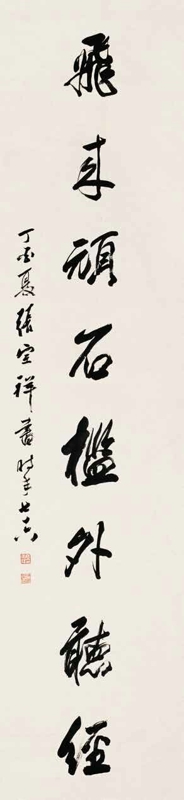 飛来頑石檻外聽經
丁酉夏張宗祥書時年七十六